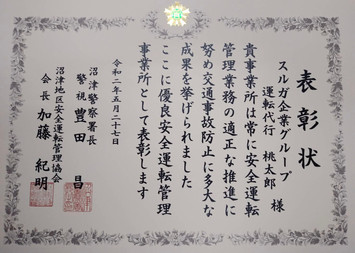 表彰状
スルガ企業グループ
運転代行 桃太郎 様
貴事業所は常に安全運転
管理業務の適正な推進に
努め交通事故防止に多大な
成果を挙げられました
ここに優良安全運転管理
事業所として表彰します
令和二年五月二十七日
沼津警察署長
警視 豊田 昌
沼津地区安全運転管理協会
会長 加藤 紀明